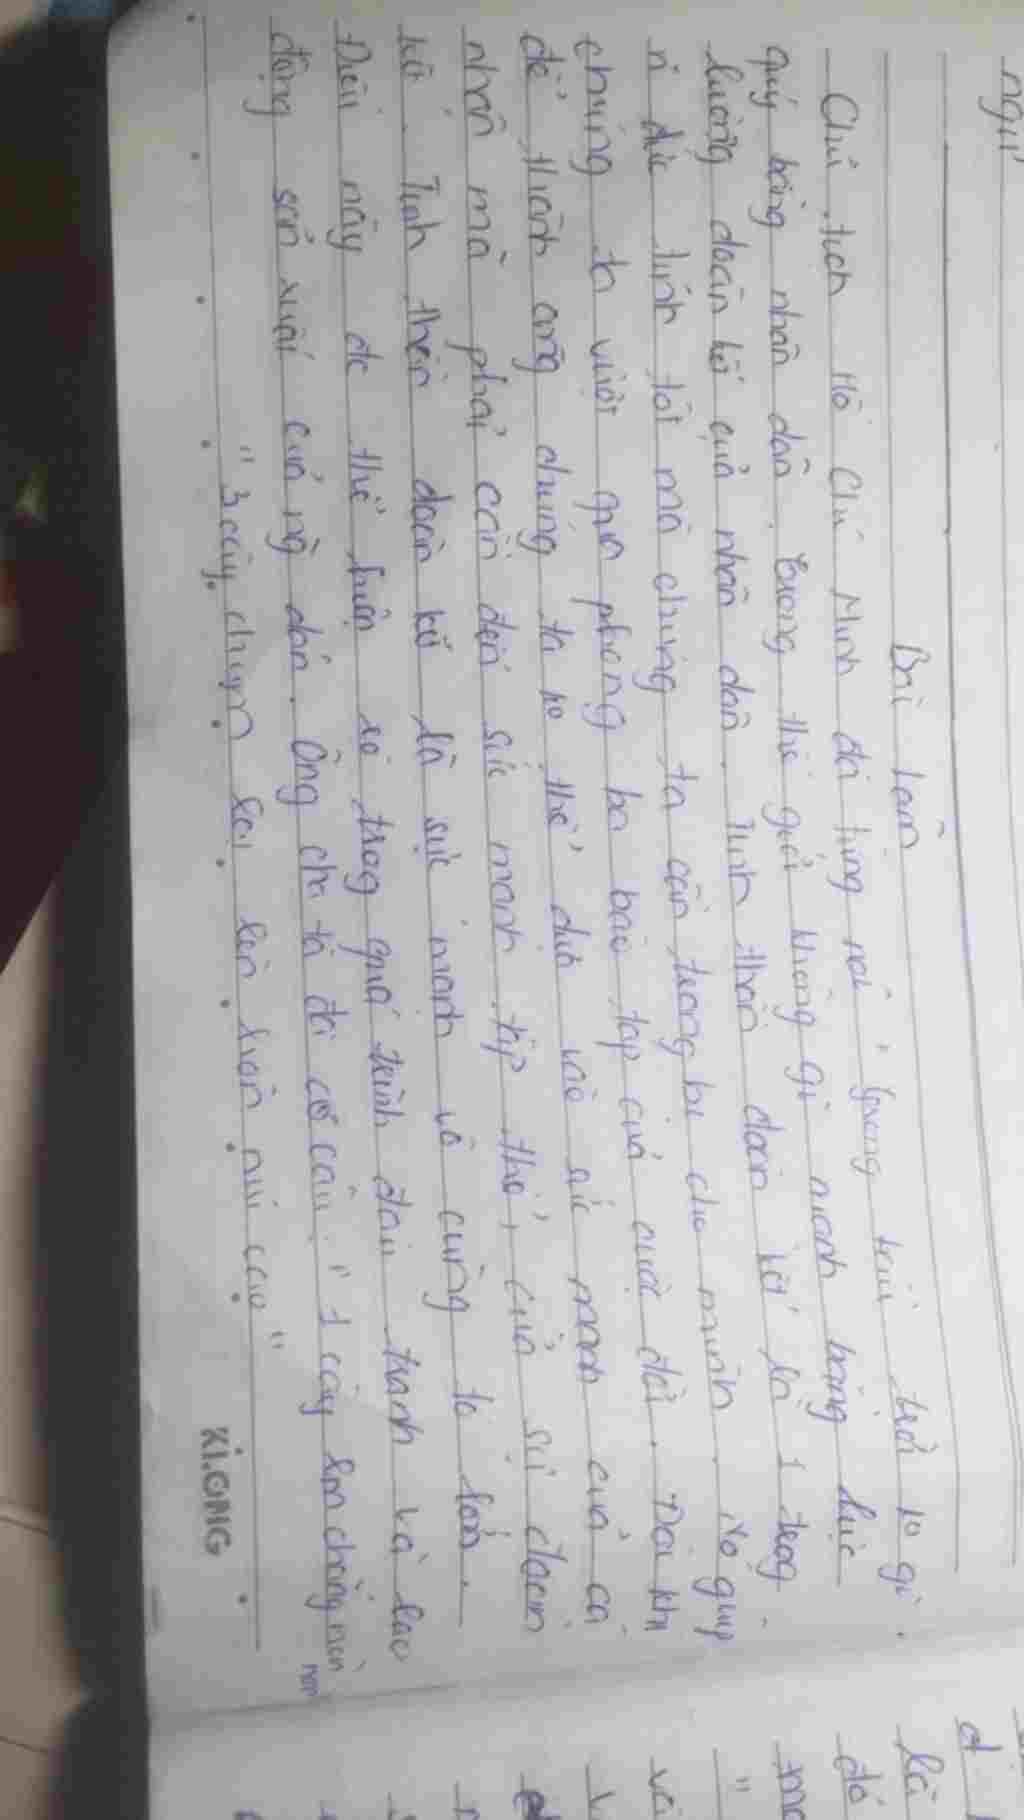 ngữ
Bài làm
Chủ tịch Hồ Chí Minh đã từng nói " trong bầu trời ko gì
quý bằng nhân dân. Trong thế giới không gì mạnh bằng lực
lượng đoàn kết của nhân dân. Tinh thần đoàn kết là 1 trog
n đức tính tốt mà chúng ta cần trang bị cho mình. Nó giúp
chúng ta vượt qua phong ba bão táp của cuộc đời. Đôi khi
để thành công chúng ta ko thể dựa vào sức mạnh của cá
nhân mà phải cần đến sức mạnh tập thể, của sự đoàn
kết. Tinh thần đoàn kết là sức mạnh vô cùng to lớn.
Điều này đc thể hiện rõ trog quá trình đấu tranh và lao
động sản xuất của ng dân. Ông cha ta đã có câu: " 1 cây làm chẳng nên
non
3 cây chụm lại lên hòn núi cao "
KI.ONG